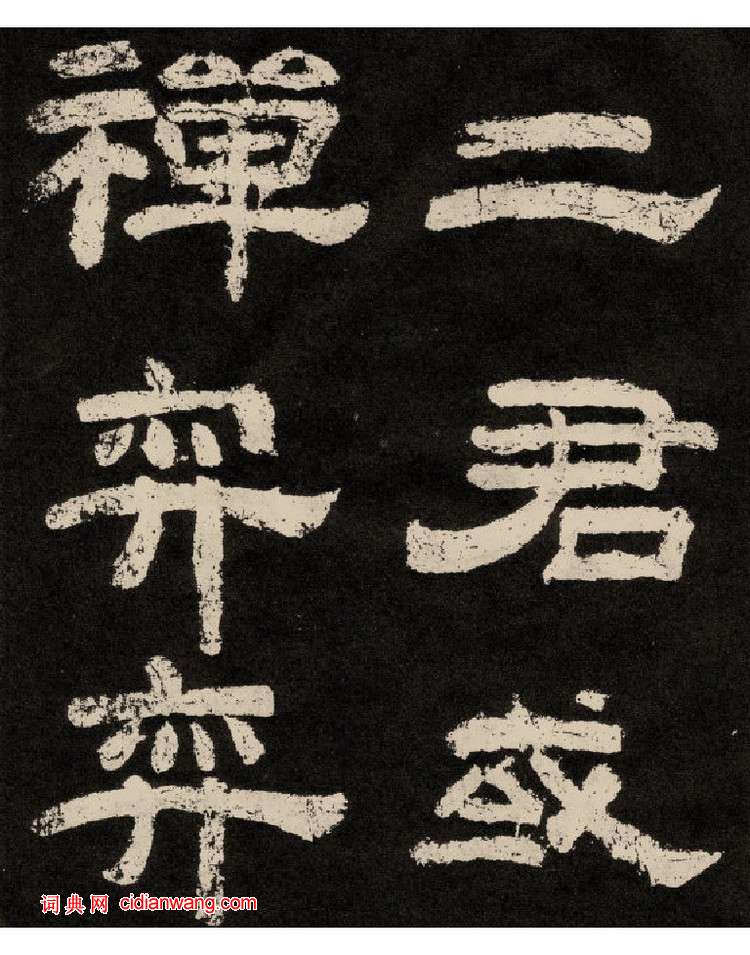 二君或
禪弈弈
词典网 cidianwang.com